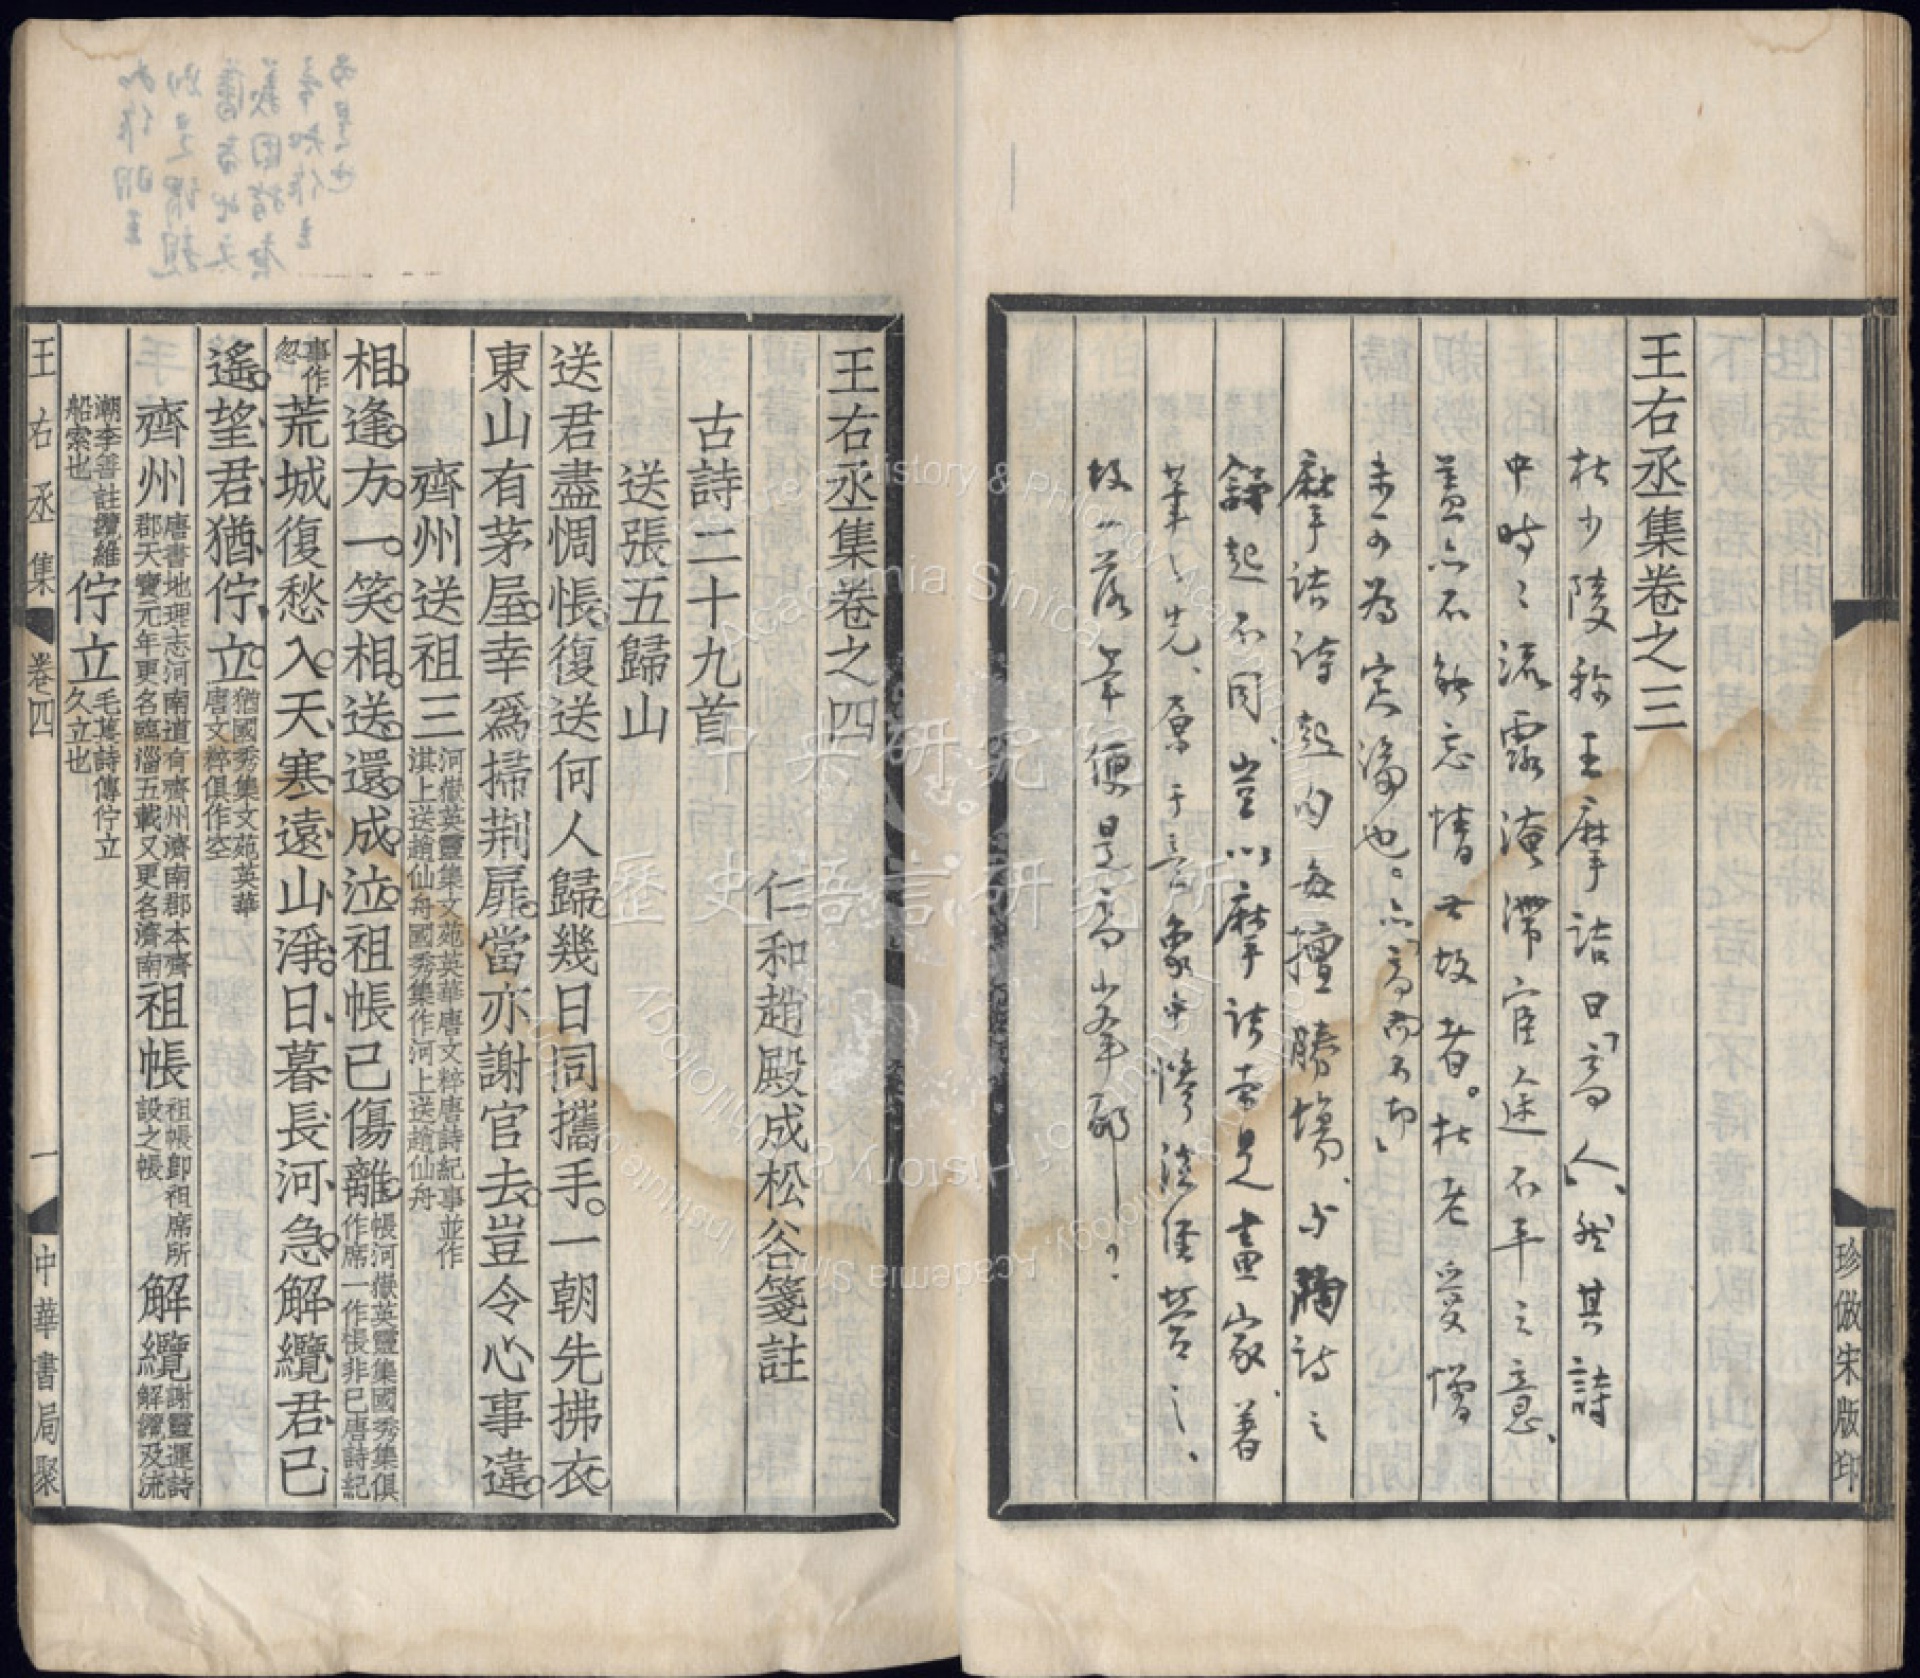 王右丞集卷之三
杜少陵稱王摩詰曰「高人」、然其詩
中時時流露淹滯宦途不平之意、
蓋亦不能忘情世故者。杜老受憎
未可為定論也。亦「高而不切」
摩詰詩起句每擅勝場、與陶詩之
起不同、豈以摩詰本是畫家、著
筆之先、原于意象中慘淡經營之、
故一落筆便是高峯耶——？
珍倣宋版印
王右丞集卷之四
仁和趙殿成松谷箋註
古詩二十九首
送張五歸山
送君盡惆悵復送何人歸幾日同攜手一朝先拂衣
東山有茅屋幸爲掃荆扉當亦謝官去豈令心事違
齊州送祖三河嶽英靈集文苑英華唐文粹唐詩紀事並作淇上送趙仙舟國秀集作河上送趙仙舟
相逢方一笑相送還成泣祖帳已傷離帳河嶽英靈集國秀集俱作席一作悵非已唐詩紀
事作忽荒城復愁入天寒遠山淨日暮長河急解纜君已
遙望君猶佇立猶國秀集文苑英華唐文粹俱作空
齊州唐書地理志河南道有齊州濟南郡本齊郡天寶元年更名臨淄五載又更名濟南祖帳祖帳卽祖席所設之帳解纜謝靈運詩解纜及流
潮李善註纜維船索也佇立毛萇詩傳佇立久立也
王右丞集
卷四
一
中華書局聚
中央研究院
歷史語言研究所
Institute of History & Philology, Academia Sinica